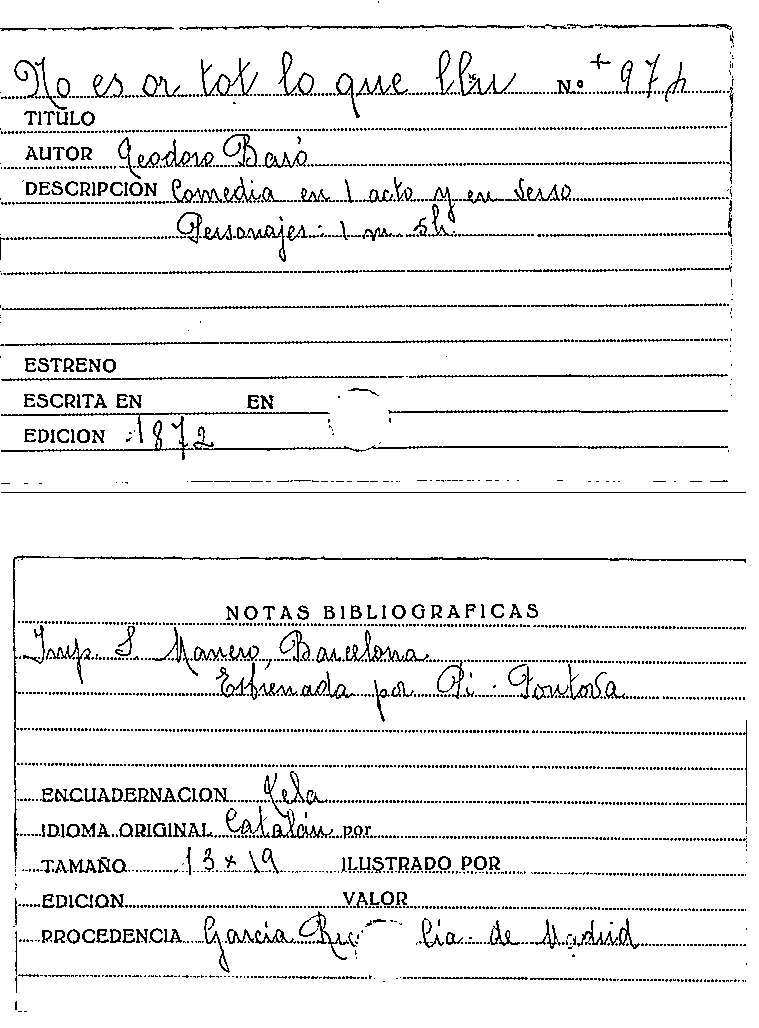 No es or tot lo que lluu Nº + 97
TITULO
AUTOR Teodoro Baró
DESCRIPCION Comedia en 1 acto y en verso
Personajes: 1 m. 5 h.
ESTRENO
ESCRITA EN EN
EDICION 1872
NOTAS BIBLIOGRAFICAS
Imp. S. Manero, Barcelona
Estrenada por Pi - Fontova
ENCUADERNACION Tela
IDIOMA ORIGINAL Catalán por
TAMAÑO 13 x 19 ILUSTRADO POR
EDICION VALOR
PROCEDENCIA García cia. de Madrid